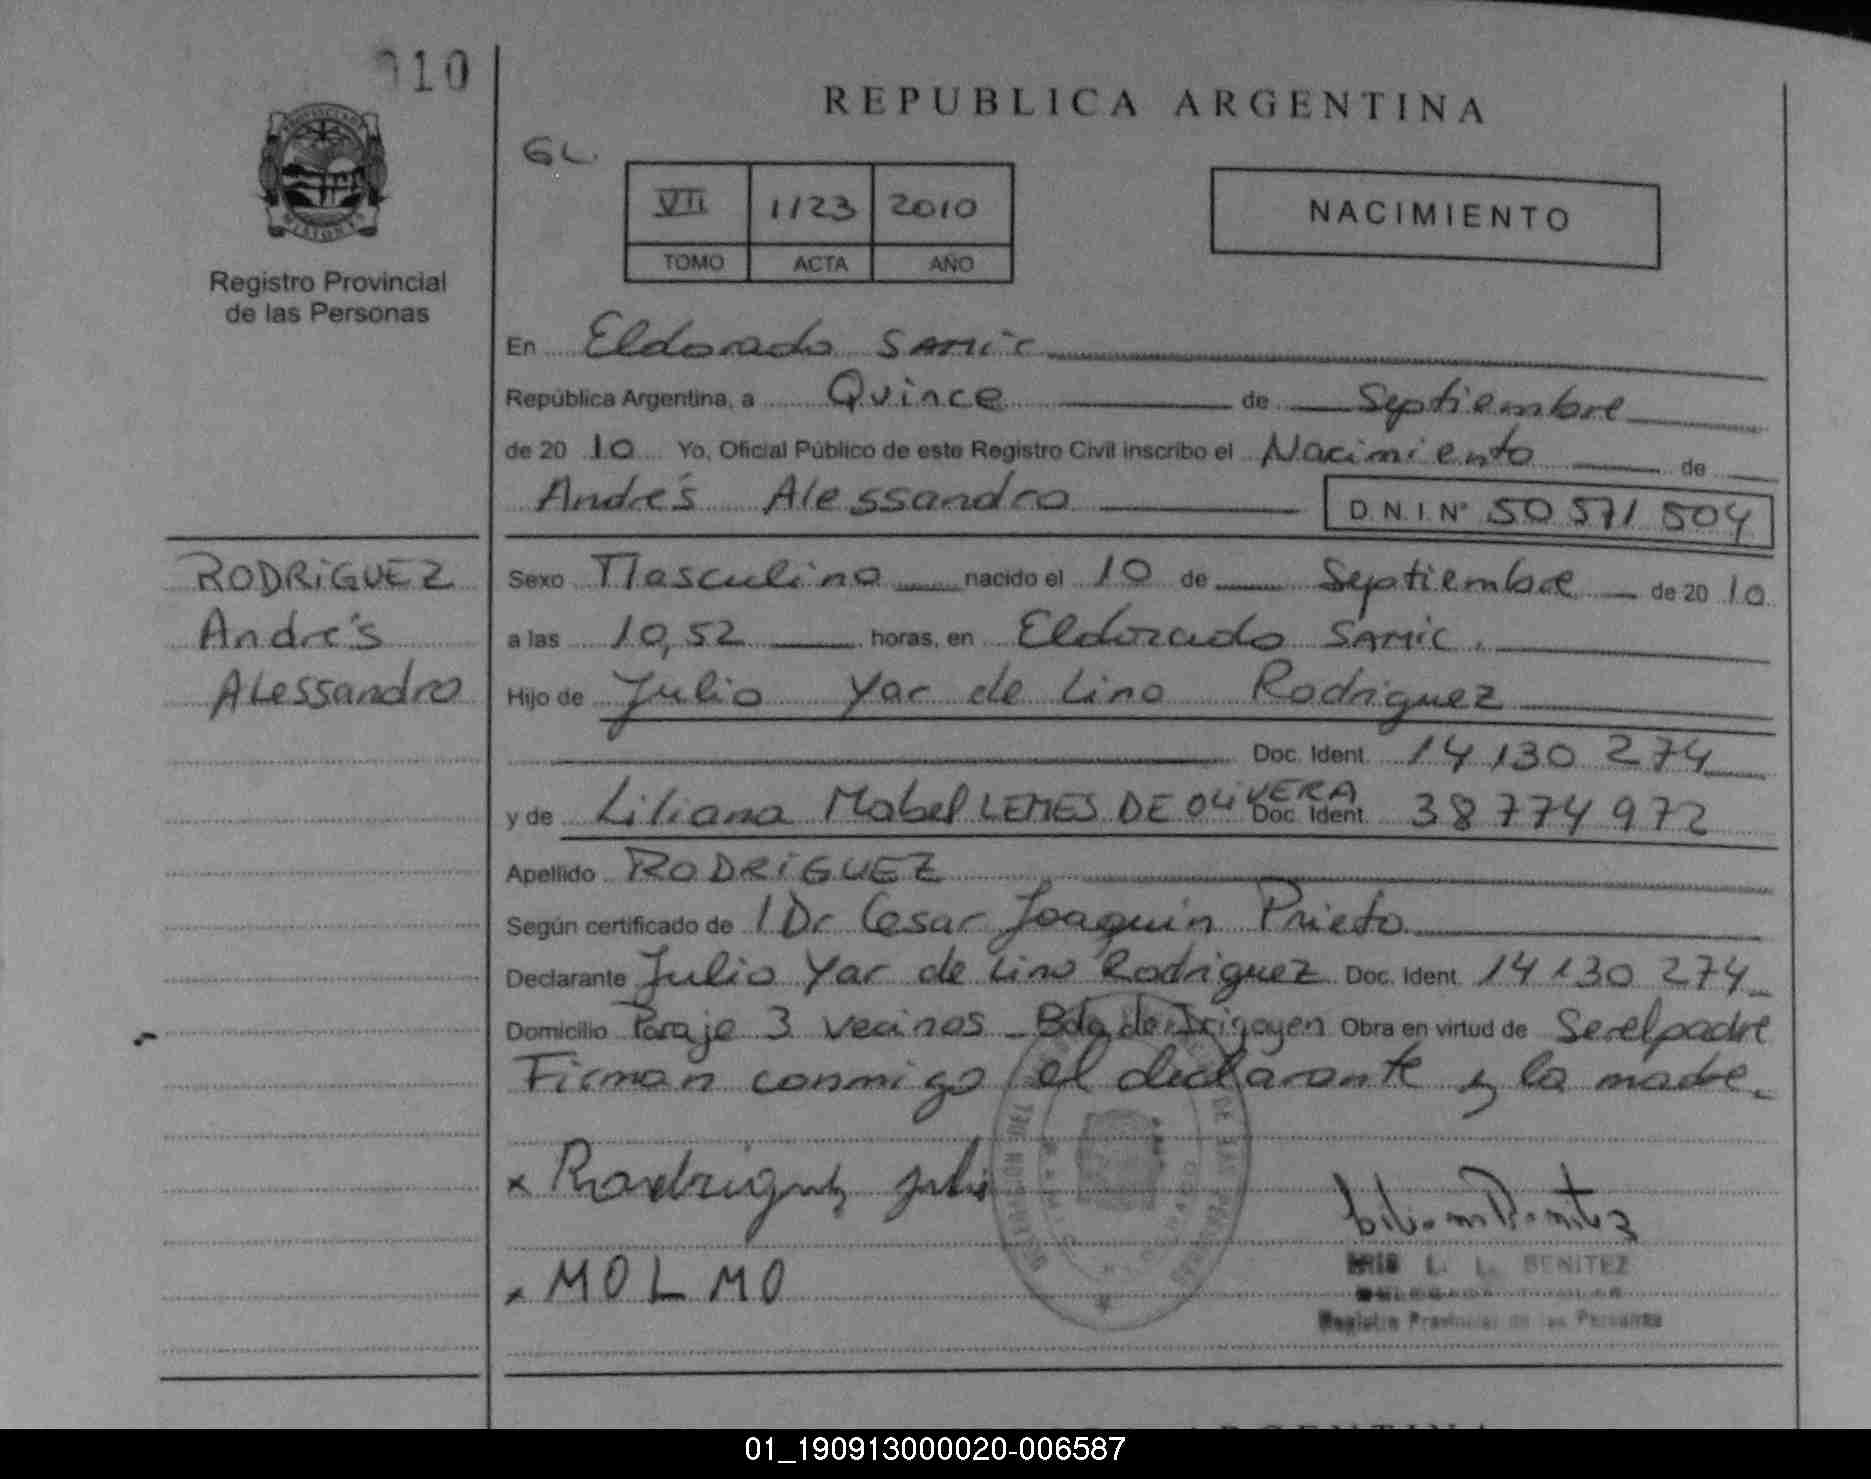 010
REPUBLICA ARGENTINA
GL.
VII 1123 2010
TOMO ACTA AÑO
NACIMIENTO
Registro Provincial
de las Personas
En Eldorado SAMIC
República Argentina, a Quince de Septiembre
de 20 10 Yo, Oficial Público de este Registro Civil inscribo el Nacimiento de
Andrés Alessandro D.N.I.Nº 50 571 504
RODRIGUEZ
Andrés
Alessandro
Sexo Masculino nacido el 10 de Septiembre de 20 10
a las 10,52 horas, en Eldorado SAMIC.
Hijo de Julio Yar de Lino Rodriguez
Doc. Ident. 14 130 274
y de Liliana Mabel LEMES DE OLIVERA Doc. Ident. 38 774 972
Apellido RODRIGUEZ
Según certificado de 1 Dr Cesar Joaquin Prieto
Declarante Julio Yar de Lino Rodriguez Doc. Ident. 14 130 274
Domicilio Paraje 3 vecinos - Bdo de Irigoyen Obra en virtud de Ser el padre
Firman conmigo el declarante y la madre.
x Rodriguez Julio
x MOLMO
IRIS L. L. BENITEZ
Registro Provincial de las Personas
01_190913000020-006587